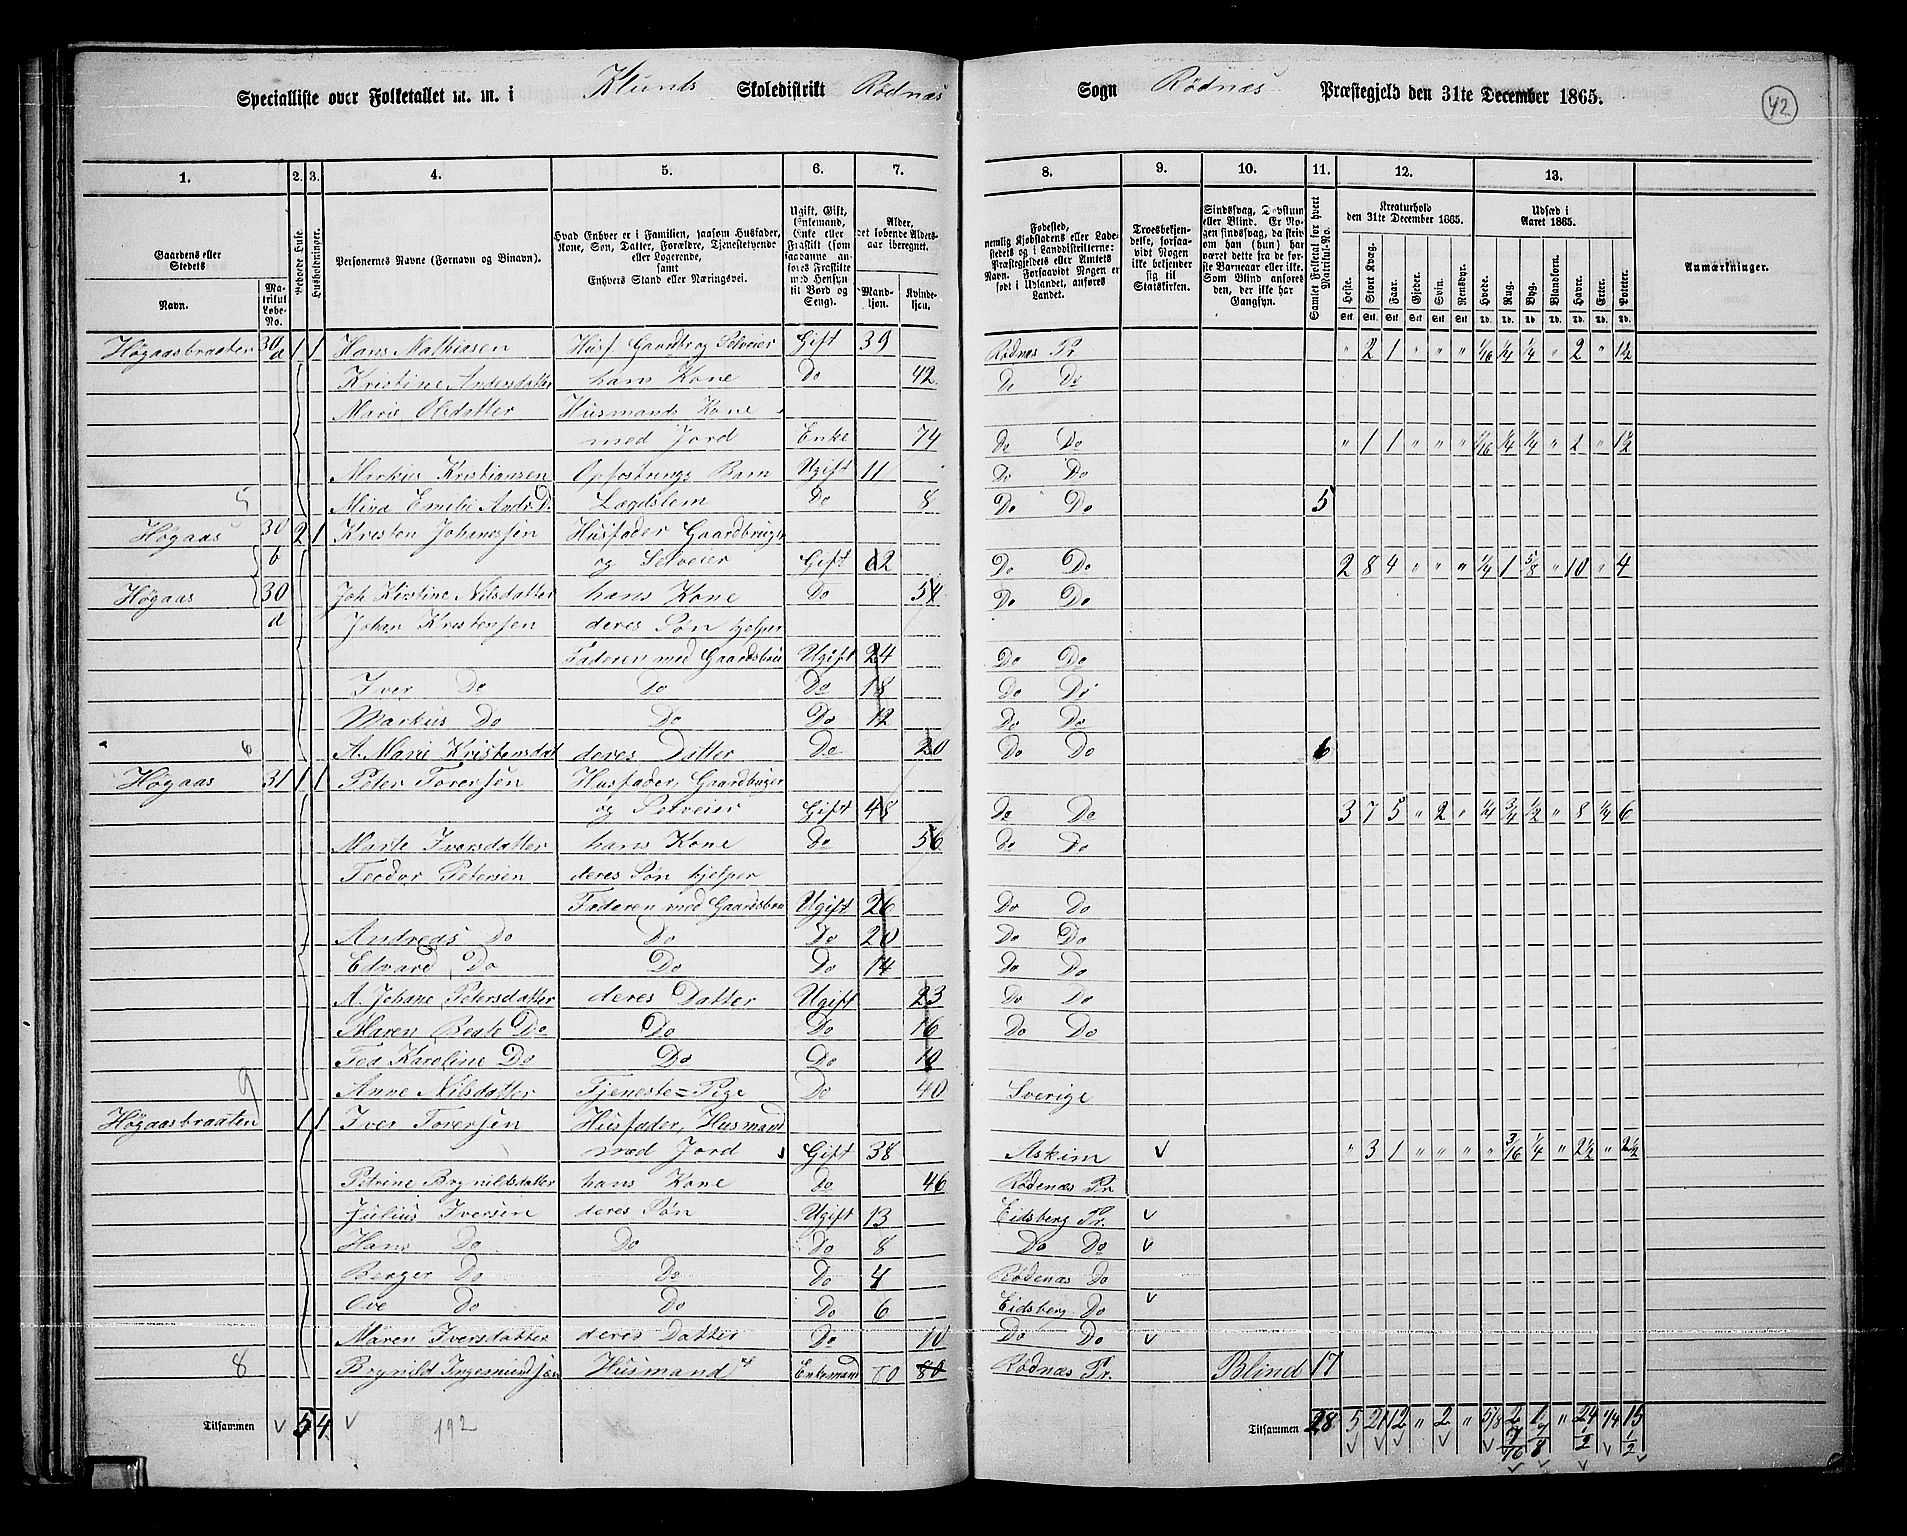 Specialliste over Folketallet m. m. i Klunds Skoledistrikt Rødnæs Sogn Rødnæs Præstegjeld den 31te December 1865. 42
1. 2. 3. 4. 5. 6. 7. 8. 9. 10. 11. 12. 13.
Gaardens eller Stedets Navn. Matrikul Løbe-No. Beboede Huse. Husholdninger. Personernes Navne (Fornavn og Binavn). Hvad Enhver er i Familien, saasom Husfader, Kone, Søn, Datter, Forældre, Tjenestetyende eller Logerende, samt Enhvers Stand eller Næringsvei. Ugift, Gift, Enkemand, Enke eller Fraskilt (som saadanne anføres Fraskilte med Hensyn til Bord og Seng). Alder, det løbende Alders-aar iberegnet. Mandkjøn. Kvindekjøn. Fødested, nemlig Kjøbstadens eller Ladestedets og i Landdistrikterne: Præstegjeldets eller Amtets Navn. Forsaavidt Nogen er født i Udlandet, anføres Landet. Troesbekjendelse, forsaavidt Nogen ikke bekjender sig til Statskirken. Sindssvag, Døvstum eller Blind. Er Nogen sindssvag, da skrives om han (hun) har været dette fra første Barneaar eller ikke. Som Blind anføres den, der ikke har Gangsyn. Samlet Folketal for hvert Matrikul-No. Kreaturhold den 31te December 1865. Heste. Stort Kvæg. Faar. Gjeder. Svin. Rensdyr. Udsæd i Aaret 1865. Hvede. Rug. Byg. Blandkorn. Havre. Erter. Poteter. Anmærkninger.
Høgaasbraaten 30/a 1 1 Hans Mathiesen Husf. Gaardbr og Selveier Gift 39 Rødnæs Pr. " 2 1 " " " 1/16 1/4 1/4 " 2 " 1 1/2
Kristine Andersdatter hans Kone Do 42 Do Do
Marie Olsdatter Husmands Kone
med Jord Enke 74 Do Do " 1 1 " " " 1/16 1/4 1/4 " 2 " 1 1/2
Markus Kristiansen Opfostrings Barn Ugift 11 Do Do
5 Mina Emilie Andr. D. Lægdslem Do 8 Do Do 5
Høgaas 30 2 1 Kristen Johannesen Husfader Gaardbruger
b og Selveier Gift 62 Do Do 2 8 4 " " " 1/4 1 5/8 " 10 " 4
Høgaas 30 Joh Kirstine Nilsdatter hans Kone Do 54 Do Do
a Johan Kristensen deres Søn hjelper
Faderen med Gaardsbrug Ugift 24 Do Do
Iver Do Do Do 18 Do Do
Markus Do Do Do 12 Do Do
6 A. Marie Kristensdat deres Datter Do 20 Do Do 6
Høgaas 31 1 1 Peter Toresen Husfader, Gaardbruger
og Selveier Gift 48 Do Do 3 7 5 " 2 " 1/4 3/4 1/2 " 8 1/4 6
Marte Iversdatter hans Kone Do 56 Do Do
Teodor Petersen deres Søn hjelper
Faderen med Gaardsbru Ugift 26 Do Do
Andreas Do Do Do 20 Do Do
Edvard Do Do Do 14 Do Do
A. Johane Petersdatter deres Datter Ugift 23 Do Do
Maren Beate Do Do Do 16 Do Do
Tea Karoline Do Do Do 10
9 Anne Nilsdatter Tjeneste=Pige Do 40 Sverige
Høgaasbraaten 1 1 Iver Toresen Husfader, Husmand
med Jord Gift 38 Askim v " 3 1 " " " " 3/16 1/4 " 2 1/2 " 2 1/2
Petrine Brynildsdatter hans Kone Do 46 Rødenæs Pr.
Julius Iversen deres Søn Ugift 13 Eidsberg Pr. v
Hans Do Do Do 8 Do Do v
Berger Do Do Do 4 Rødenæs Do
Ove Do Do Do 6 Eidsberg Do v
Maren Iversdatter deres Datter Do 10 Do Do v
8 Brynild Ingemundsen Husmand Enkemand 80 80 Rødnæs Pr. Blind 17
Tilsammen v 5 4 v 192 Tilsammen 28 5 21 12 " 2 " 5/8 2 7/16 1 7/8 " 24 1/2 1/4 15 1/2